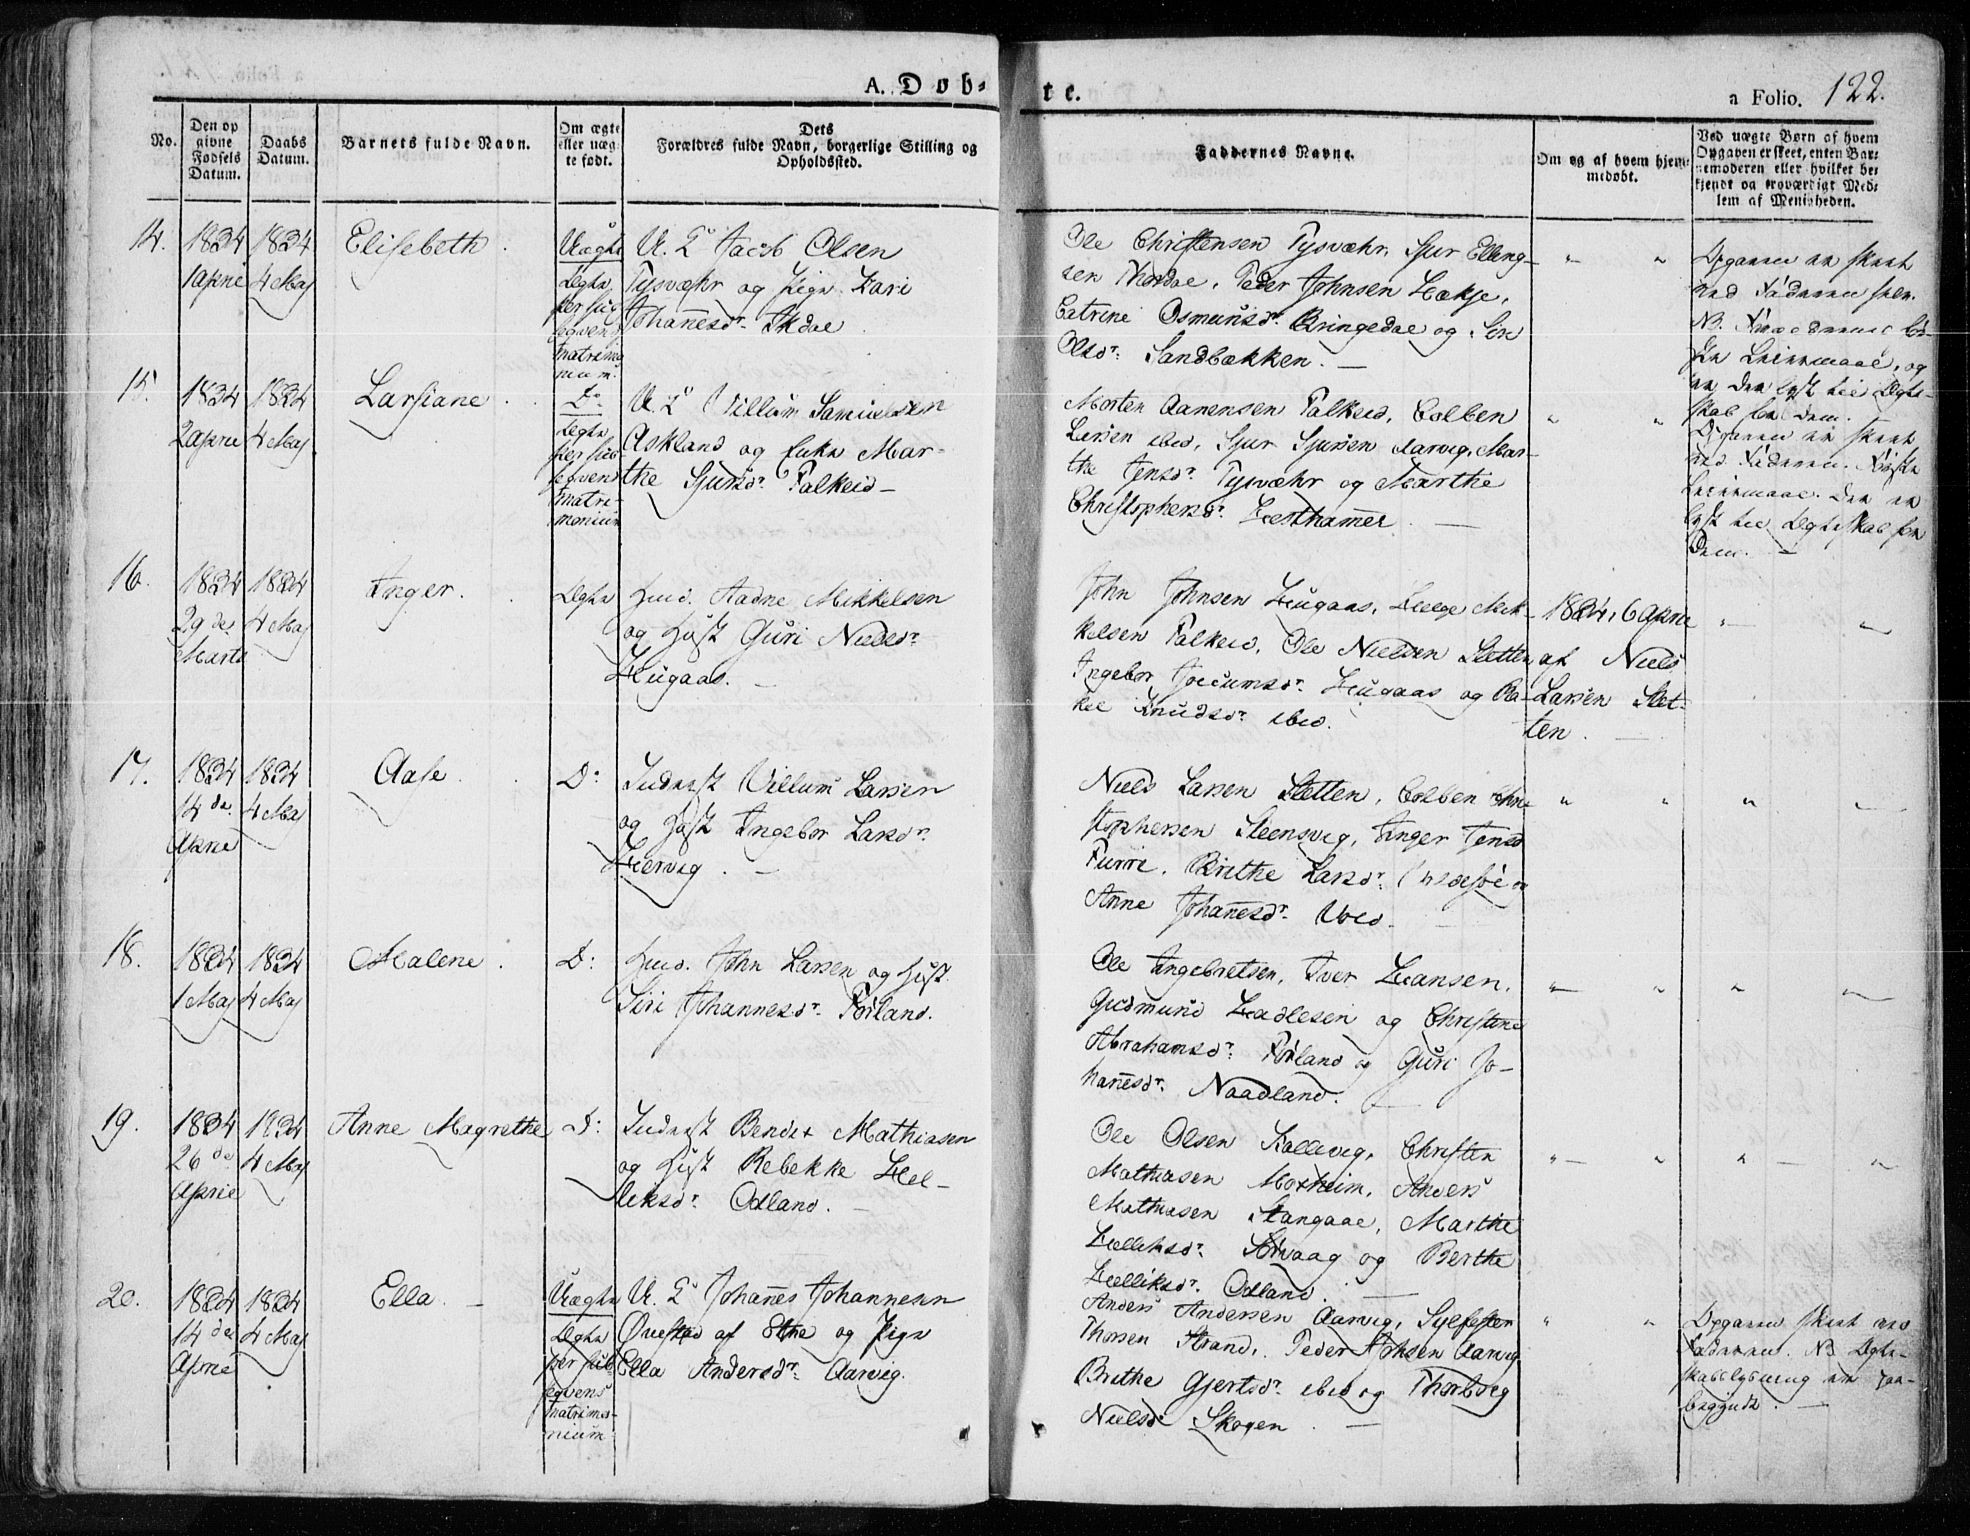 A. Døb-
te.
a Folio. 122.
No.
Den op
givne
Fødsels
Datum.
Daabs
Datum.
Barnets fulde Navn.
Om ægte
eller uæg
te født.
Dets
Forældres fulde Navn, borgerlige Stilling og
Opholdssted.
Faddernes Navne.
Om og af hvem hjem-
medøbt.
Ved uægte Børn af hvem
Opgaven er skeet, enten Bar-
nemoderen eller hvilket be-
kjendt og troværdigt Med-
lem af Menigheden.
14.
1834
1 April
1834
4 Maj
Elisebeth
Uægte
Ægte
per sub
seqvens
matrimo
nium.
U. K. Jacob Olsen
Tysvæhr og Pige Kari
Johañesdr.
Ole Christensen Tysvæhr, Sjur Elling-
sen, Peder Johnsen
Catrine Osmundsdr. Bringedal og Siri
Olsdr: Sandbækken. —
Opgaven er skeet
ved Faderen selv.
NB.
Leiermaal, og
er den lyst til Ægte-
skab for dem.
15.
1834
2 April
1834
4 Maj
Larsiane
Do
Ægte
per sub
seqvens
matri-
monium
U. K. Villum Samuelsen
Askland og Enke Mar-
the Sjursdr. Falkeid —
Morten Aanensen Falkeid, Colben
Larsen ibid, Sjur Sjursen Aarvig, Mar-
the Jensdr. Tysvæhr og Marthe
Christophersdr. Hesthamer. —
Opgaven er skeet
ved Faderen. Første
Leiermaal. Der er
lyst til Ægteskab for
Dem. —
16.
1834
29 de
Marts
1834
4 Maj
Inger.
Ægte
Huusm. Aadne Mikkelsen
og Hust Guri Nielsdr.
Haugaas. —
John Johnsen Haugaas, Helge Mik-
kelsen Falkeid, Ole Nielsen Sletten
Ingebor Jocumsdr. Haugaas og Ra-
kel Knudsdr. ibid.
1834, 6 April
af Niels
Larsen Slet-
ten.
17.
1834
14 de
April
1834
4 Maj
Aase
Do
Inderst Villum Larsen
og Hust Ingebor Larsdr.
Hervig. —
Niels Larsen Sletten, Colben Chri
stophersen Steensvig, Inger Jensd
Furre, Brithe Larsdr.
Anne Johañesdr. ibid.
18.
1834
1 Maj
1834
4 Maj
Malene
Do
Huusm. John Larsen og Hust.
Siri Johannesdr. Førland.
Ole Ingebretsen, Iver Hansen,
Gudmund Hadlesen og Christine
Abrahamsdr. Førland og Guri Jo-
hañesdr. Naadland.
19.
1834
26 de
April
1834
4 Maj
Anne Magrethe
Do
Inderst Bendix Mathiasen
og Hust Rebekke Hel-
liksdr. Odland. —
Ole Olsen Kallevig, Christen
Mathiasen Moxheim, Anders
Mathiasen Stangaae, Marthe
Helliksdr. Sørvaag og Berthe
Helliksdr. Odland.
20.
1834
14 de
April
1834
4 Maj
Ella. —
Uægte
Ægte
per sub
seqvens
matrimo-
nium
U. K. Johañes Johannesen
Øvestad af Etne og Pige
Ella Andersdr. Aarvig.
Anders Andersen Aarvig, Sylfester
Thorsen Strand, Peder Johnsen Aarvig
Brithe Gjertsdr. ibid og Thorborg
Nielsd Skogen —
Opgaven skeet ved
Faderen. NB Ægte-
skabslysning er paa-
begyndt. —